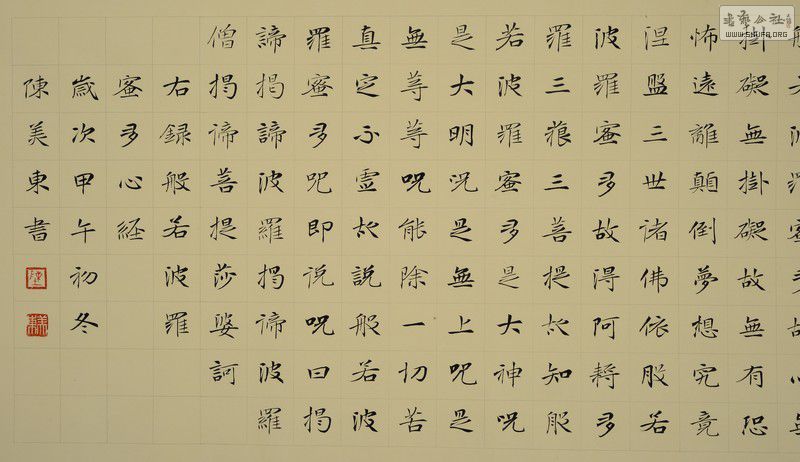 般若波羅蜜多故心無
掛礙無掛礙故無有恐
怖遠離顛倒夢想究竟
涅盤三世諸佛依般若
波羅蜜多故得阿耨多
羅三藐三菩提故知般
若波羅蜜多是大神咒
是大明咒是無上咒是
無等等咒能除一切苦
真实不虚故說般若波
羅蜜多咒即说咒曰揭
諦揭諦波羅揭諦波羅
僧揭諦菩提莎婆訶
右録般若波羅
蜜多心経
歲次甲午初冬
陳美東書
WWW.SHUFA.ORG